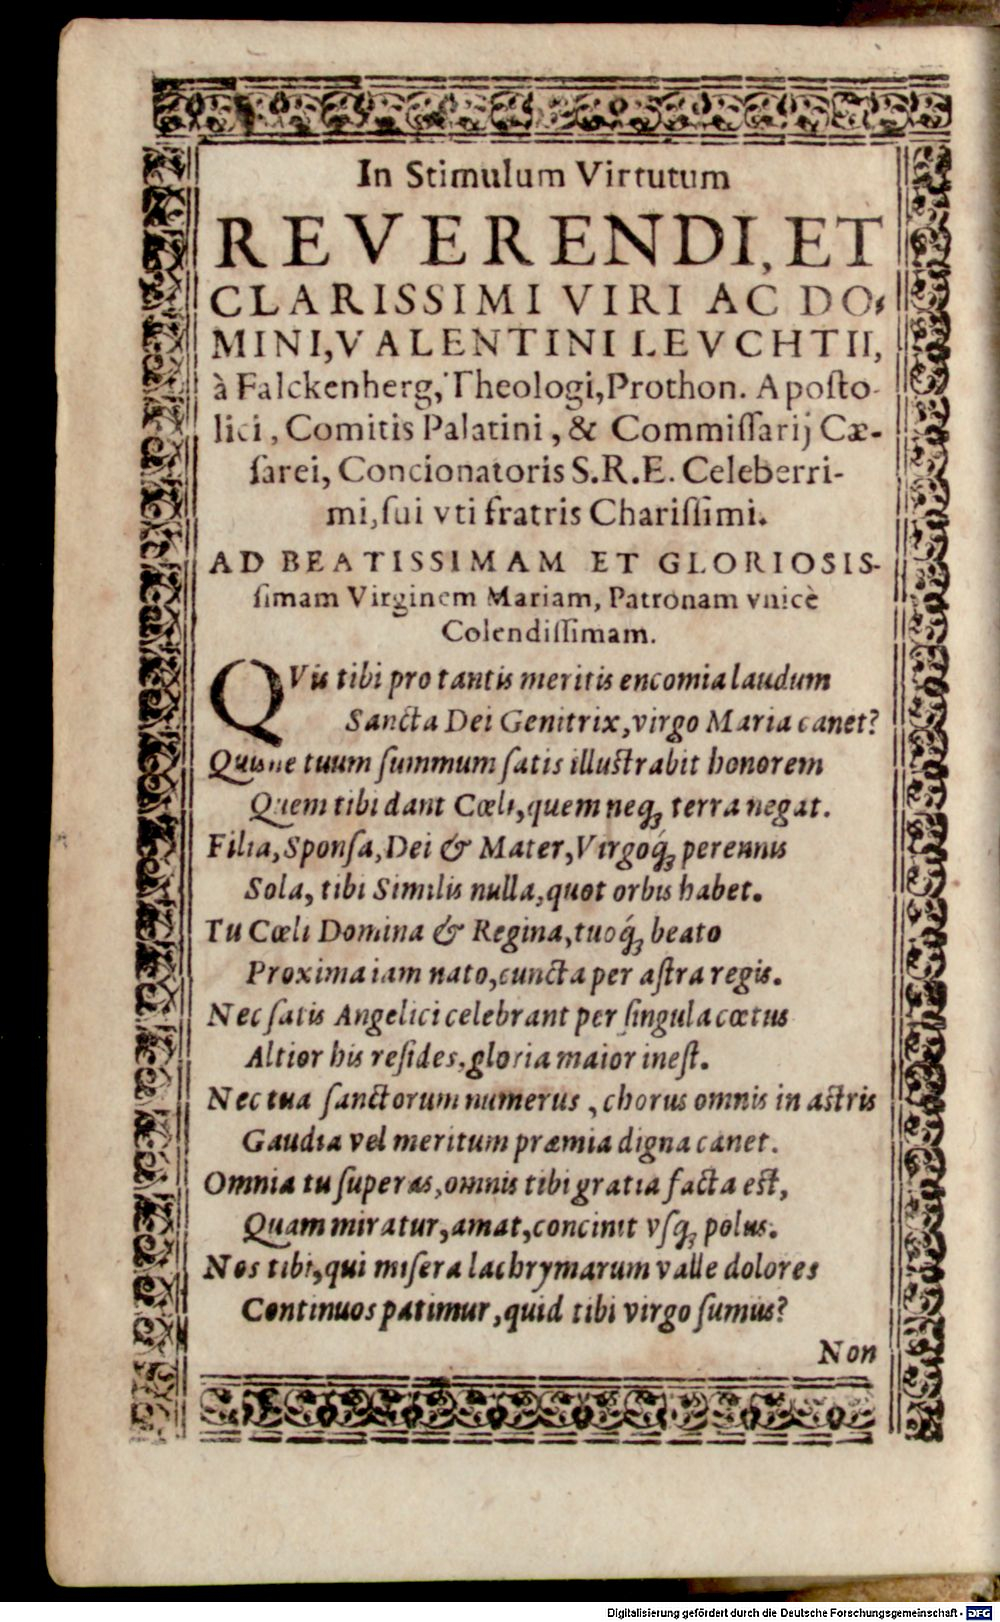 In Stimulum Virtutum
REVERENDI, ET
CLARISSIMI VIRI AC DO-
MINI, VALENTINI LEVCHTII,
à Falckenherg, Theologi, Prothon. Aposto-
lici, Comitis Palatini, & Commiſſarij Cæ-
ſarei, Concionatoris S.R.E. Celeberri-
mi, ſui vti fratris Chariſſimi.
AD BEATISSIMAM ET GLORIOSIS-
ſimam Virginem Mariam, Patronam vnicè
Colendiſſimam.
QVis tibi pro tantis meritis encomia laudum
Sancta Dei Genitrix, virgo Maria canet?
Quisne tuum ſummum ſatis illuſtrabit honorem
Quem tibi dant Cœli, quem neq́; terra negat.
Filia, Sponſa, Dei & Mater, Virgoq́; perennis
Sola, tibi Similis nulla, quot orbis habet.
Tu Cœli Domina & Regina, tuoq́; beato
Proxima iam nato, cuncta per aſtra regis.
Nec ſatis Angelici celebrant per ſingula cœtus
Altior his reſides, gloria maior ineſt.
Nec tua ſanctorum numerus, chorus omnis in aſtris
Gaudia vel meritum præmia digna canet.
Omnia tu ſuperas, omnis tibi gratia facta eſt,
Quam miratur, amat, concinit vſq; polus.
Nos tibi, qui miſera lachrymarum valle dolores
Continuos patimur, quid tibi virgo ſumus?
Non
Digitalisierung gefördert durch die Deutsche Forschungsgemeinschaft - DFG